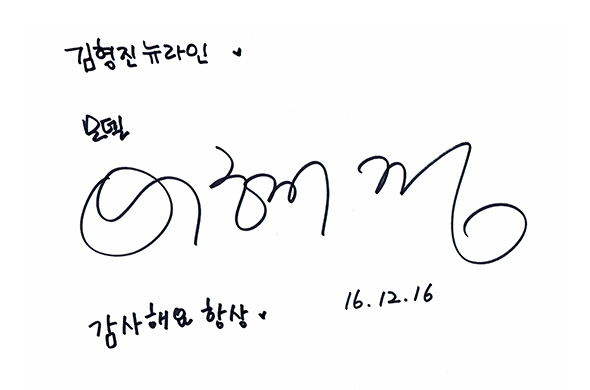 김형진뉴라인 ♥
모델
감사해요 항상 ♥
16.12.16